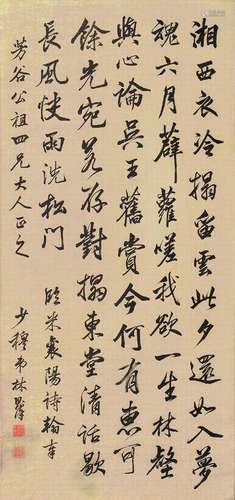 湘西衣冷搨留雲此夕還如入夢
魂六月薜蘿嗟我欲一生林壑
與心論吳王舊賞今何有惠可
餘光宛若存對搨東堂清話歇
長風快雨洗松門
臨米襄陽詩翰奉
芳谷公祖四兄大人正之
少穆弟林則徐